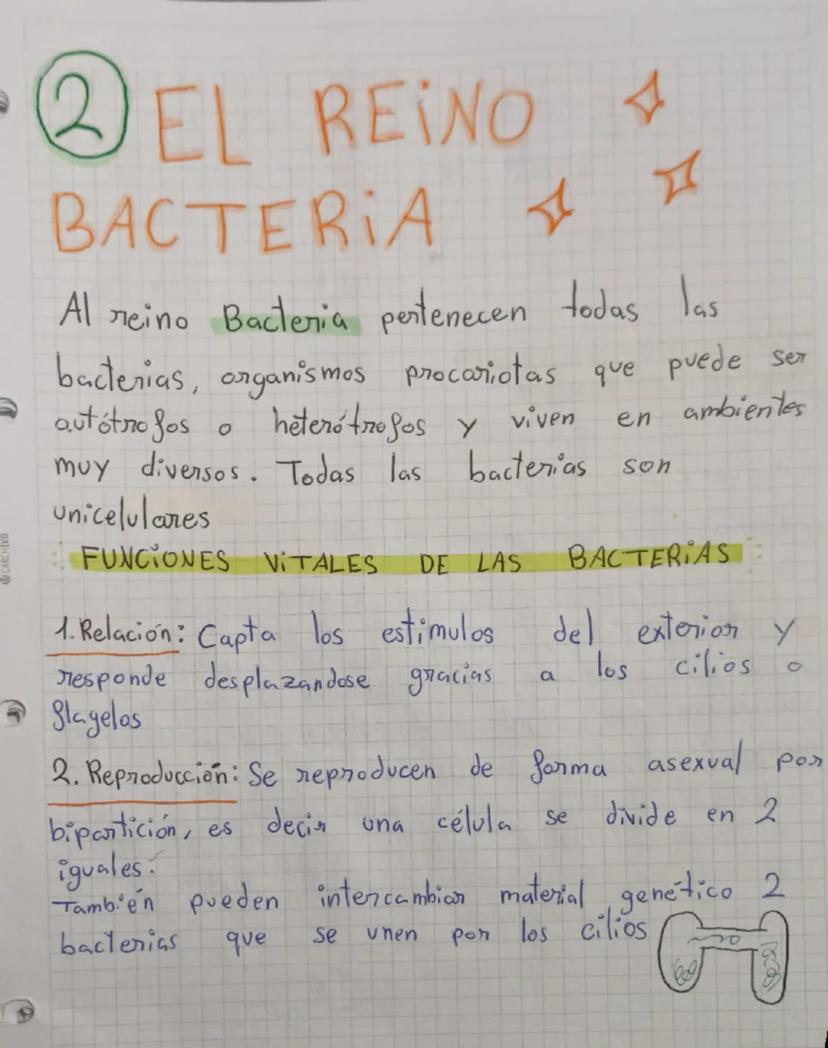 2 EL REINO
BACTERIA
Al reino Bacteria pertenecen todas las
bacterias, organismos procariotas que puede ser
autótrofos o heterótrofos y viven en ambientes
muy diversos. Todas las bacterias son
unicelulares
FUNCIONES VITALES DE LAS BACTERIAS
1. Relación: Capta los estimulos del exterior y
responde desplazandose gracias a los cilios o
flagelos
2. Reproducción: Se reproducen de forma asexual por
bipartición, es decir una célula se divide en 2
iguales.
También pueden intercambiar material genético 2
bacterias que se unen por los cilios